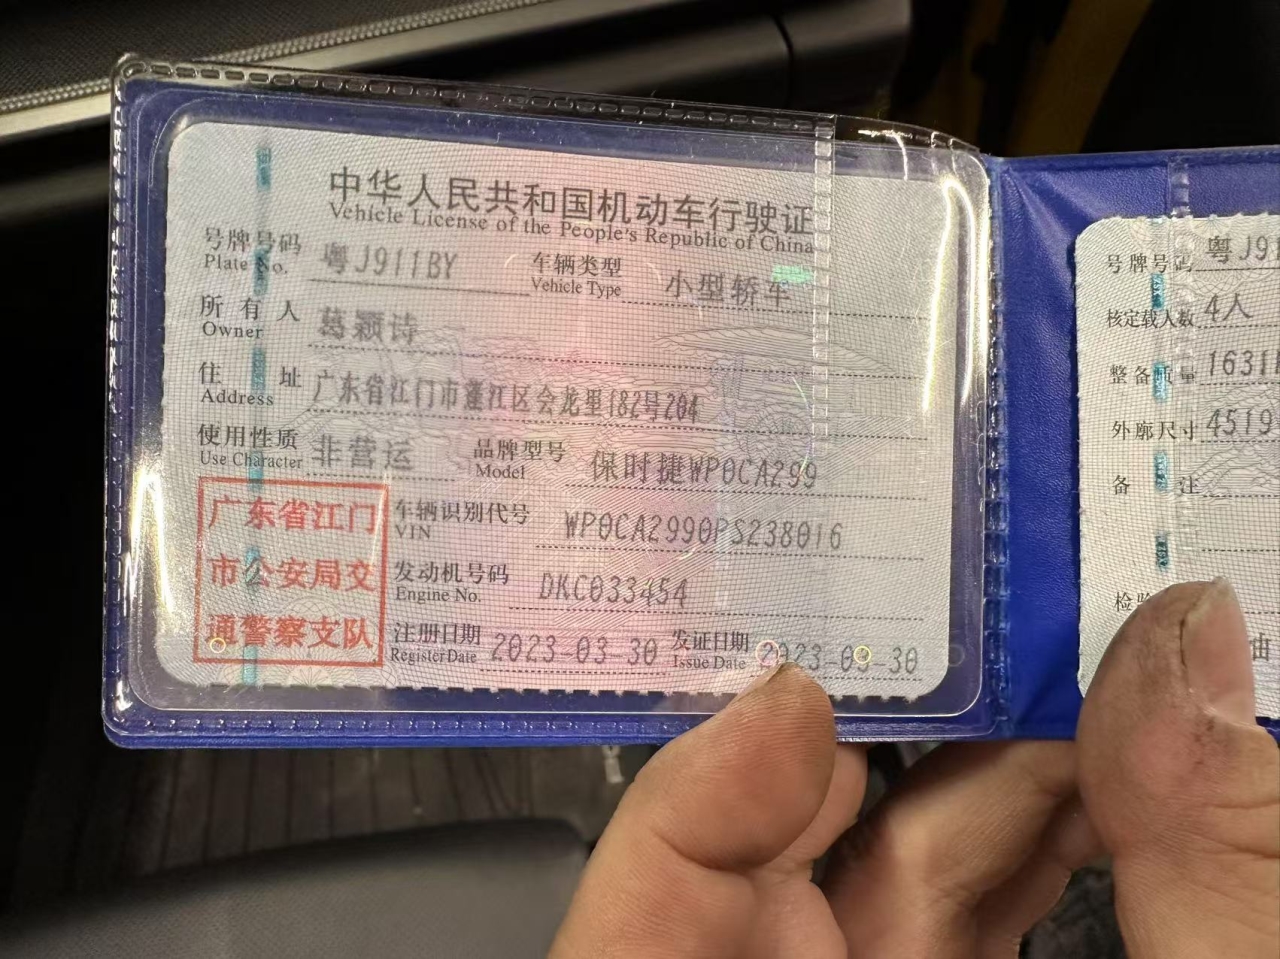 中华人民共和国机动车行驶证
Vehicle License of the People's Republic of China
号牌号码 粤J911BY 车辆类型 小型轿车
Plate No. Vehicle Type
所有人 葛颖诗
Owner
住址 广东省江门市蓬江区会龙里182号204
Address
使用性质 非营运 品牌型号 保时捷WP0CA299
Use Character Model
广东省江门
市公安局交
通警察支队
车辆识别代号 WP0CA2990PS238016
VIN
发动机号码 DKC033454
Engine No.
注册日期 2023-03-30 发证日期
Register Date Issue Date
号牌号码 粤J91
核定载人数 4人
整备质量 1631
外廓尺寸 4519
备注
检验
油